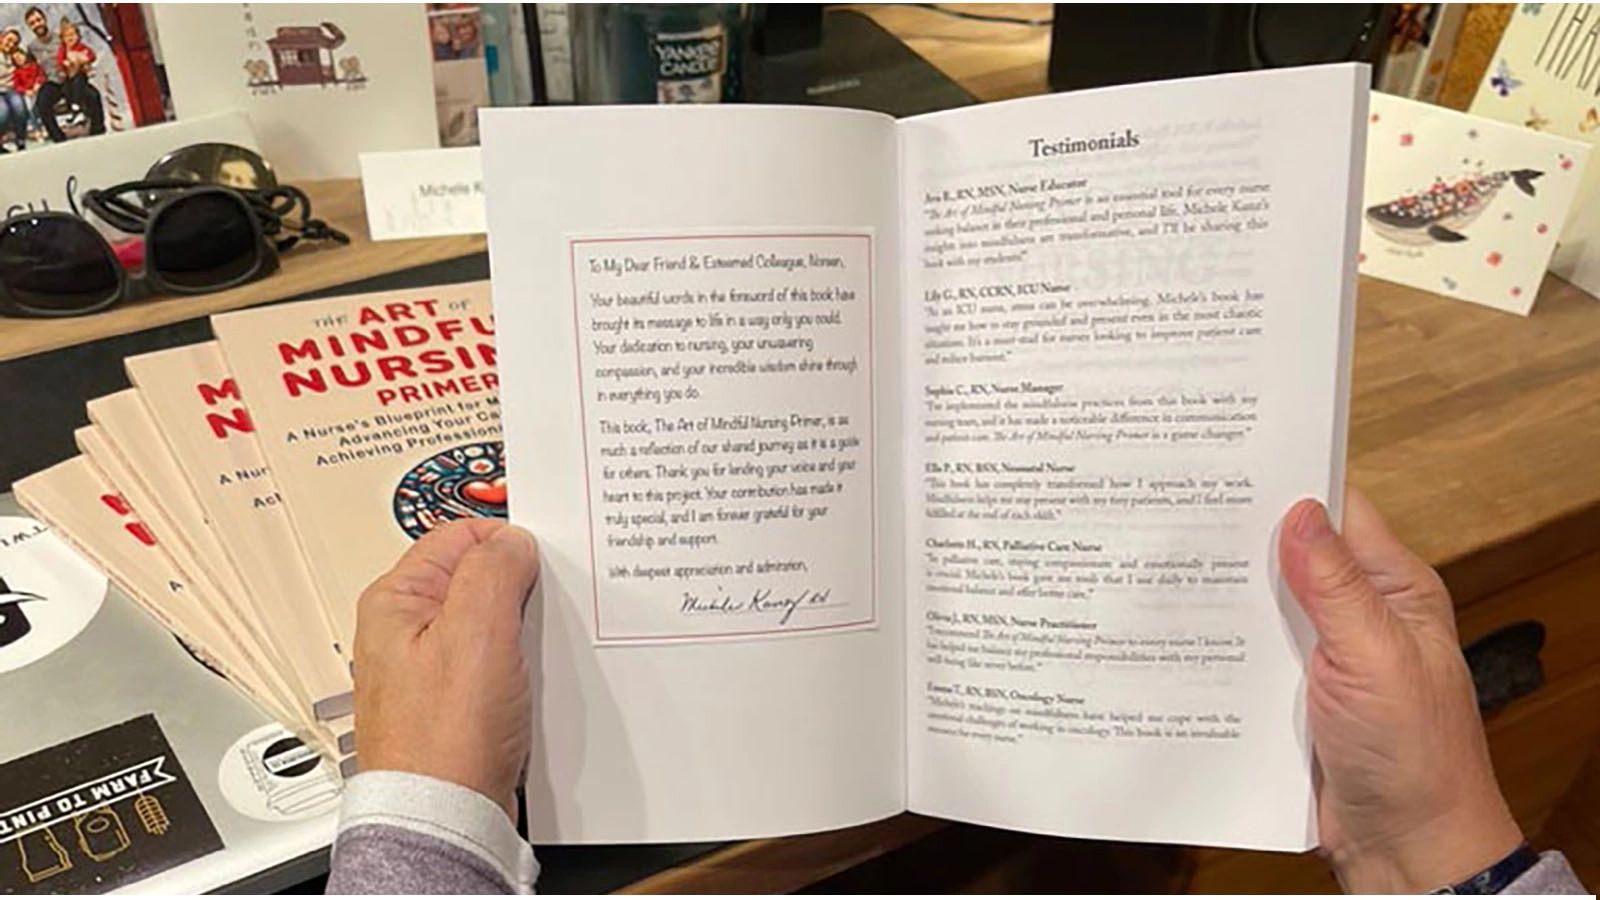 YANKEE
CANDLE
THAN
Michele K
THE ART OF
MINDFU
NURSIN
PRIMER
A Nurse's Blueprint for M
Advancing Your Ca
Achieving Profession
M
N
A Nur
Ac
A
FARM TO PINT
To My Dear Friend & Esteemed Colleague,
Your beautiful words in the foreword of this book have
brought its message to life in a way only you could.
Your dedication to nursing, your unwavering
compassion, and your incredible wisdom shine through
in everything you do.
This book, The Art of Mindful Nursing Primer, is as
much a reflection of our shared journey as it is a guide
for others. Thank you for lending your voice and your
heart to this project. Your contribution has made it
truly special, and I am forever grateful for your
friendship and support.
With deepest appreciation and admiration,
Testimonials
Ava B., RN, MSN, Nurse Educator
"The Art of Mindful Nursing Primer is an essential tool for every nurse
seeking balance in their professional and personal life. Michele Kunz's
insights into mindfulness are transformative, and I'll be sharing this
book with my students."
Lily G., RN, CCRN, ICU Nurse
"As an ICU nurse, stress can be overwhelming. Michele's book has
taught me how to stay grounded and present even in the most chaotic
situations. It's a must-read for nurses looking to improve patient care
and reduce burnout."
Sophia C., RN, Nurse Manager
"I've implemented the mindfulness practices from this book with my
nursing team, and it has made a noticeable difference in communication
and patient care. The Art of Mindful Nursing Primer is a game changer."
Ella P., RN, BSN, Neonatal Nurse
"This book has completely transformed how I approach my work.
Mindfulness helps me stay present with my tiny patients, and I feel more
fulfilled at the end of each shift."
Charlotte H., RN, Palliative Care Nurse
"In palliative care, staying compassionate and emotionally present
is crucial. Michele's book gave me tools that I use daily to maintain
emotional balance and offer better care."
Olivia J., RN, MSN, Nurse Practitioner
"I recommend The Art of Mindful Nursing Primer to every nurse I know. It
has helped me balance my professional responsibilities with my personal
well-being like never before."
Emma T., RN, BSN, Oncology Nurse
"Michele's teachings on mindfulness have helped me cope with the
emotional challenges of working in oncology. This book is an invaluable
resource for every nurse."